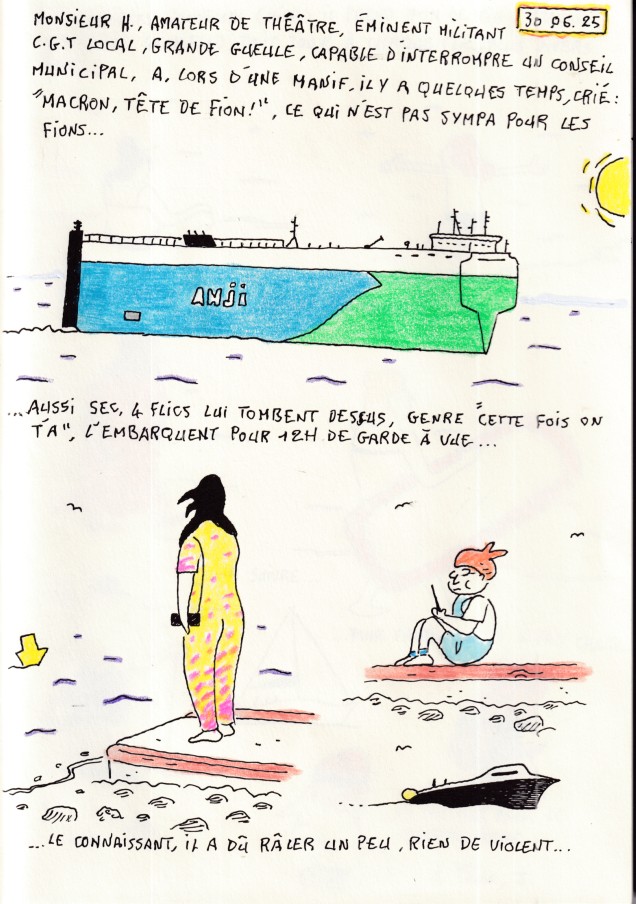 MONSIEUR H., AMATEUR DE THÉÂTRE, ÉMINENT MILITANT
30 06.25
C.G.T LOCAL, GRANDE GUEULE, CAPABLE D'INTERROMPRE UN CONSEIL
MUNICIPAL, A, LORS D'UNE MANIF, IL Y A QUELQUES TEMPS, CRIÉ :
"MACRON, TÊTE DE FION!", CE QUI N'EST PAS SYMPA POUR LES
FIONS...
ANJi
...AUSSI SEC, 4 FLICS LUI TOMBENT DESSUS, GENRE "CETTE FOIS ON
T'A", L'EMBARQUENT POUR 12H DE GARDE À VUE...
...LE CONNAISSANT, IL A DÛ RÂLER UN PEU, RIEN DE VIOLENT...